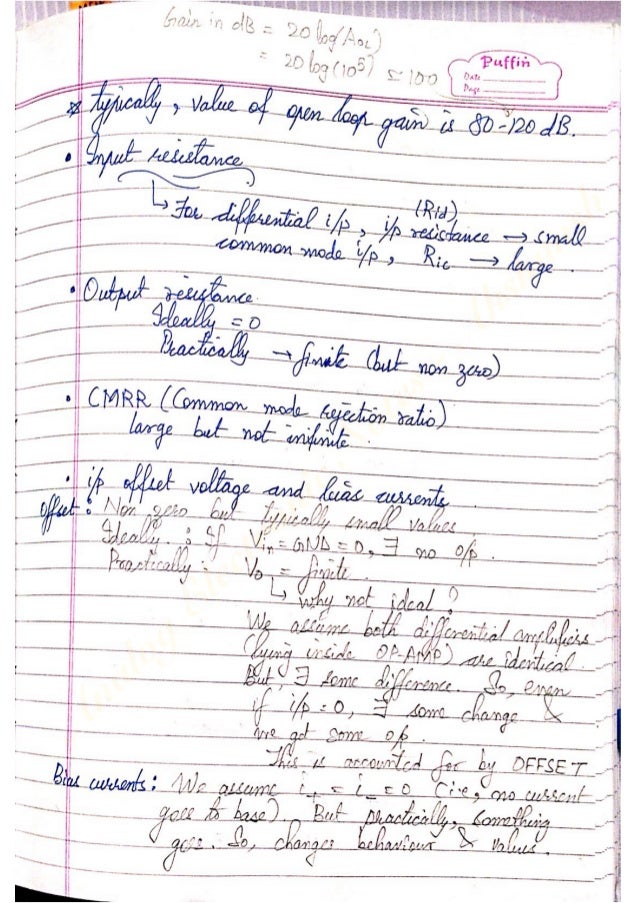 Gain in dB = 20 log(AOL)
= 20 log(10^5) ≃ 100
Puffin
Date
Page
* typically, value of open loop gain is 80-120 dB.
• Input resistance
↳ For differential i/p, i/p resistance (Rid) → small
common mode i/p, Ric → large.
• Output resistance.
Ideally = 0
Practically → finite (but non zero)
• CMRR (Common mode rejection ratio)
large but not infinite.
• i/p offset voltage and bias currents
Offset: Non zero but typically small values
Ideally : If Vin = GND = 0, ∃ no o/p.
Practically : Vo = finite.
↳ why not ideal?
We assume both differential amplifiers
(lying inside OP-AMP) are identical
But ∃ some difference. So, even
if i/p = 0, ∃ some change &
we get some o/p.
This is accounted for by OFFSET
Bias currents: We assume i+ = i- = 0 (i.e, no current
goes to base). But practically, something
goes. So, changes behaviour & values.